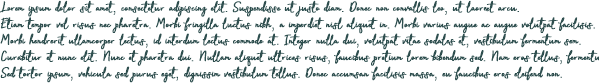 Lorem ipsum dolor sit amet, consectetur adipiscing elit. Suspendisse ut justo diam. Donec non convallis leo, ut laoreet arcu.
Etiam tempor vel risus nec pharetra. Morbi fringilla luctus nibh, a imperdiet nisl aliquet in. Morbi varius augue ac augue volutpat facilisis.
Morbi hendrerit ullamcorper lectus, id interdum lectus commodo at. Integer nulla dui, volutpat vitae sodales at, vestibulum fermentum sem.
Curabitur et nunc elit. Nunc et pharetra dui. Nullam aliquet ultrices risus, faucibus pretium lorem bibendum sed. Nam eros tellus, fermentu
Sed tortor ipsum, vehicula sed purus eget, dignissim vestibulum tellus. Donec accumsan facilisis massa, eu faucibus eros eleifend non.